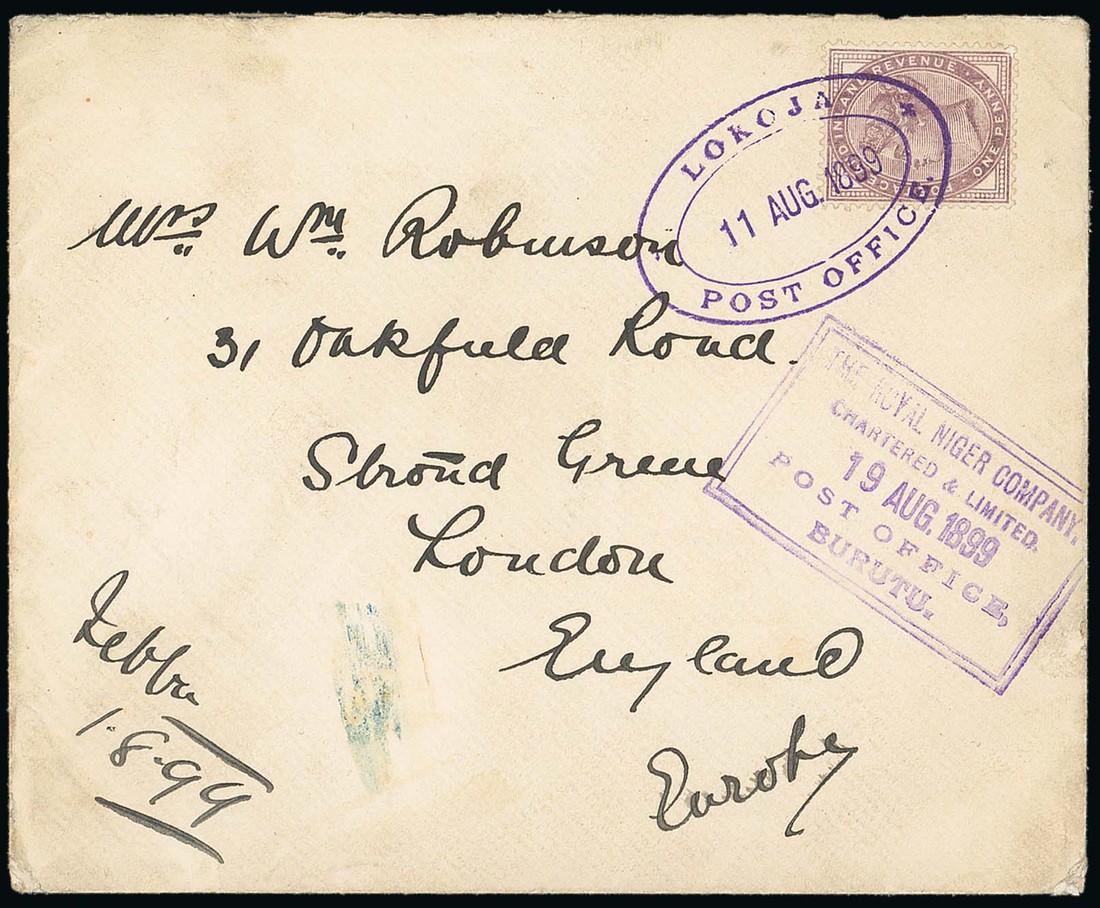 POSTAGE AND INLAND REVENUE · ONE PENNY
LOKOJA
11 AUG. 1899
POST OFFICE.
Mrs Wm Robinson
31 Oakfield Road.
Stroud Green
London
England
Europe
THE ROYAL NIGER COMPANY,
CHARTERED & LIMITED.
19 AUG. 1899
POST OFFICE,
BURUTU.
Jebba
1.8.99